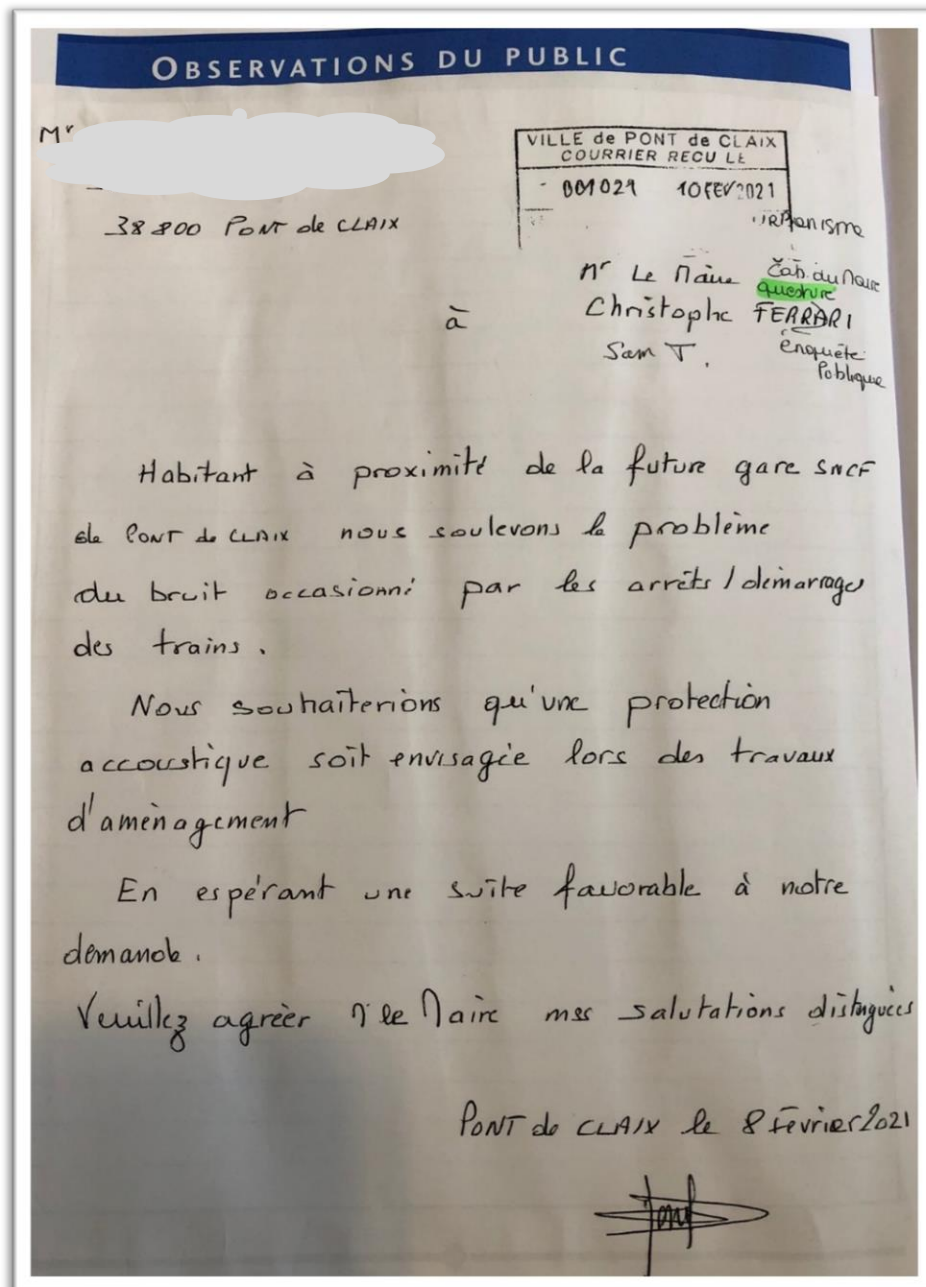 OBSERVATIONS DU PUBLIC
Mr
VILLE de PONT de CLAIX
COURRIER RECU LE
- 001021 10 FEV 2021
38800 PONT de CLAIX
URBanisme
Mr Le Maire Cab. du Maire
questure
à Christophe FERRARI
Sam T. enquête
Publique
Habitant à proximité de la future gare SNCF
de PONT de CLAIX nous soulevons le problème
du bruit occasionné par les arrêts / démarrages
des trains.
Nous souhaiterions qu'une protection
accoustique soit envisagée lors des travaux
d'aménagement
En espérant une suite favorable à notre
demande.
Veuillez agréer Mr le Maire mes salutations distinguées
PONT de CLAIX le 8 Février 2021